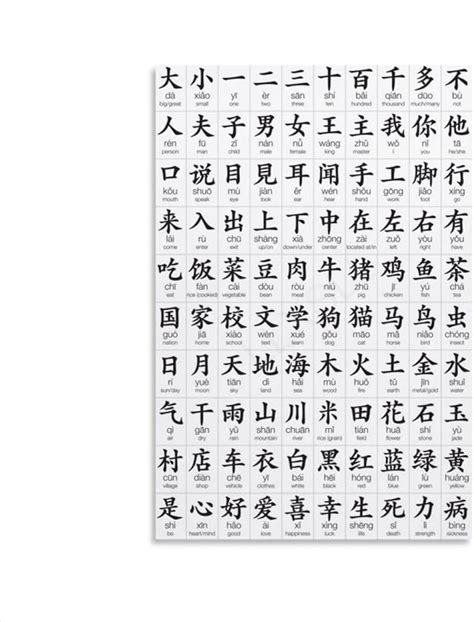 大 小 一 二 三 十 百 千 多 不
dà xiǎo yī èr sān shí bǎi qiān duō bù
big/great small one two three ten hundred thousand much/many not
人 夫 子 男 女 王 主 我 你 他
rén fū zǐ nán nǚ wáng zhǔ wǒ nǐ tā
person man child male female king master I you he/she
口 说 目 見 耳 闻 手 工 脚 行
kǒu shuō mù jiàn ěr wén shǒu gōng jiǎo xíng
mouth speak eye look ear hear hand work foot go
来 入 出 上 下 中 在 左 右 有
lái rù chū shàng xià zhōng zài zuǒ yòu yǒu
come enter exit up/on down/under center located at/in left right have
吃 饭 菜 豆 肉 牛 猪 鸡 鱼 茶
chī fàn cài dòu ròu niú zhū jī yú chá
eat rice (cooked) vegetable bean meat cow pig chicken fish tea
国 家 校 文 学 狗 猫 马 鸟 虫
guó jiā xiào wén xué gǒu māo mǎ niǎo chóng
nation home school writing learn dog cat horse bird insect
日 月 天 地 海 木 火 土 金 水
rì yuè tiān dì hǎi mù huǒ tǔ jīn shuǐ
sun/day moon sky land sea wood fire earth metal/gold water
气 干 雨 山 川 米 田 花 石 玉
qì gān yǔ shān chuān mǐ tián huā shí yù
air dry rain mountain river rice (grain) field flower stone jade
村 店 车 衣 白 黑 红 蓝 绿 黄
cūn diàn chē yī bái hēi hóng lán lǜ huáng
village shop vehicle clothes white black red blue green yellow
是 心 好 爱 喜 幸 生 死 力 病
shì xīn hǎo ài xǐ xìng shēng sǐ lì bìng
be heart/mind good love happiness luck life death strength sickness